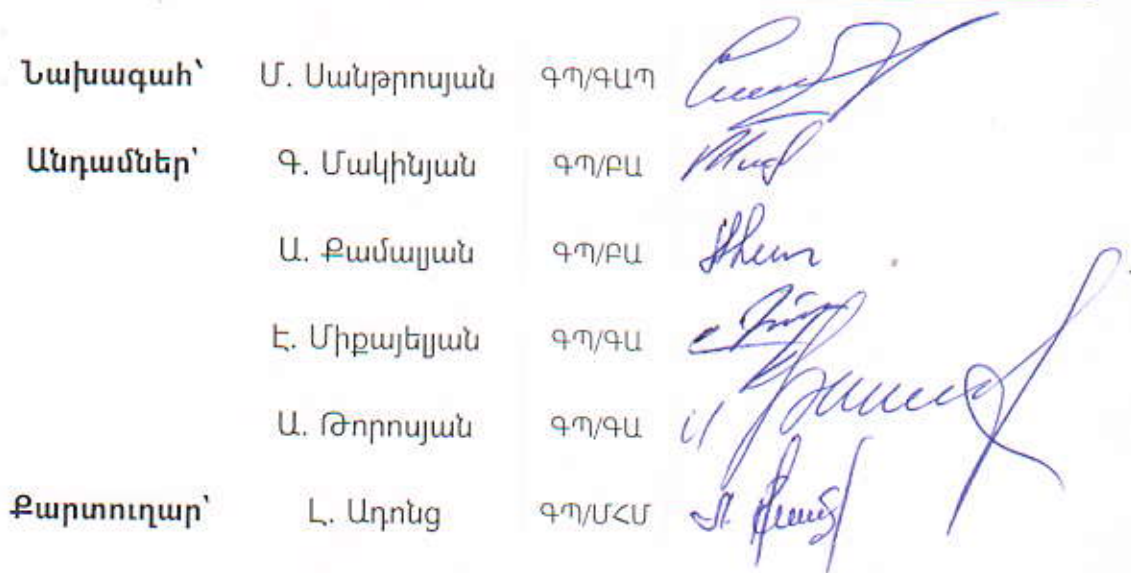 Նախագահ՝ Մ. Սանթրոսյան ԳՊ/ԳԱՊ
Անդամներ՝ Գ. Մակինյան ԳՊ/ԲԱ
Ա. Քամալյան ԳՊ/ԲԱ
Է. Միքայելյան ԳՊ/ԳԱ
Ա. Թորոսյան ԳՊ/ԳԱ
Քարտուղար՝ Լ. Ադոնց ԳՊ/ՄՀՄ